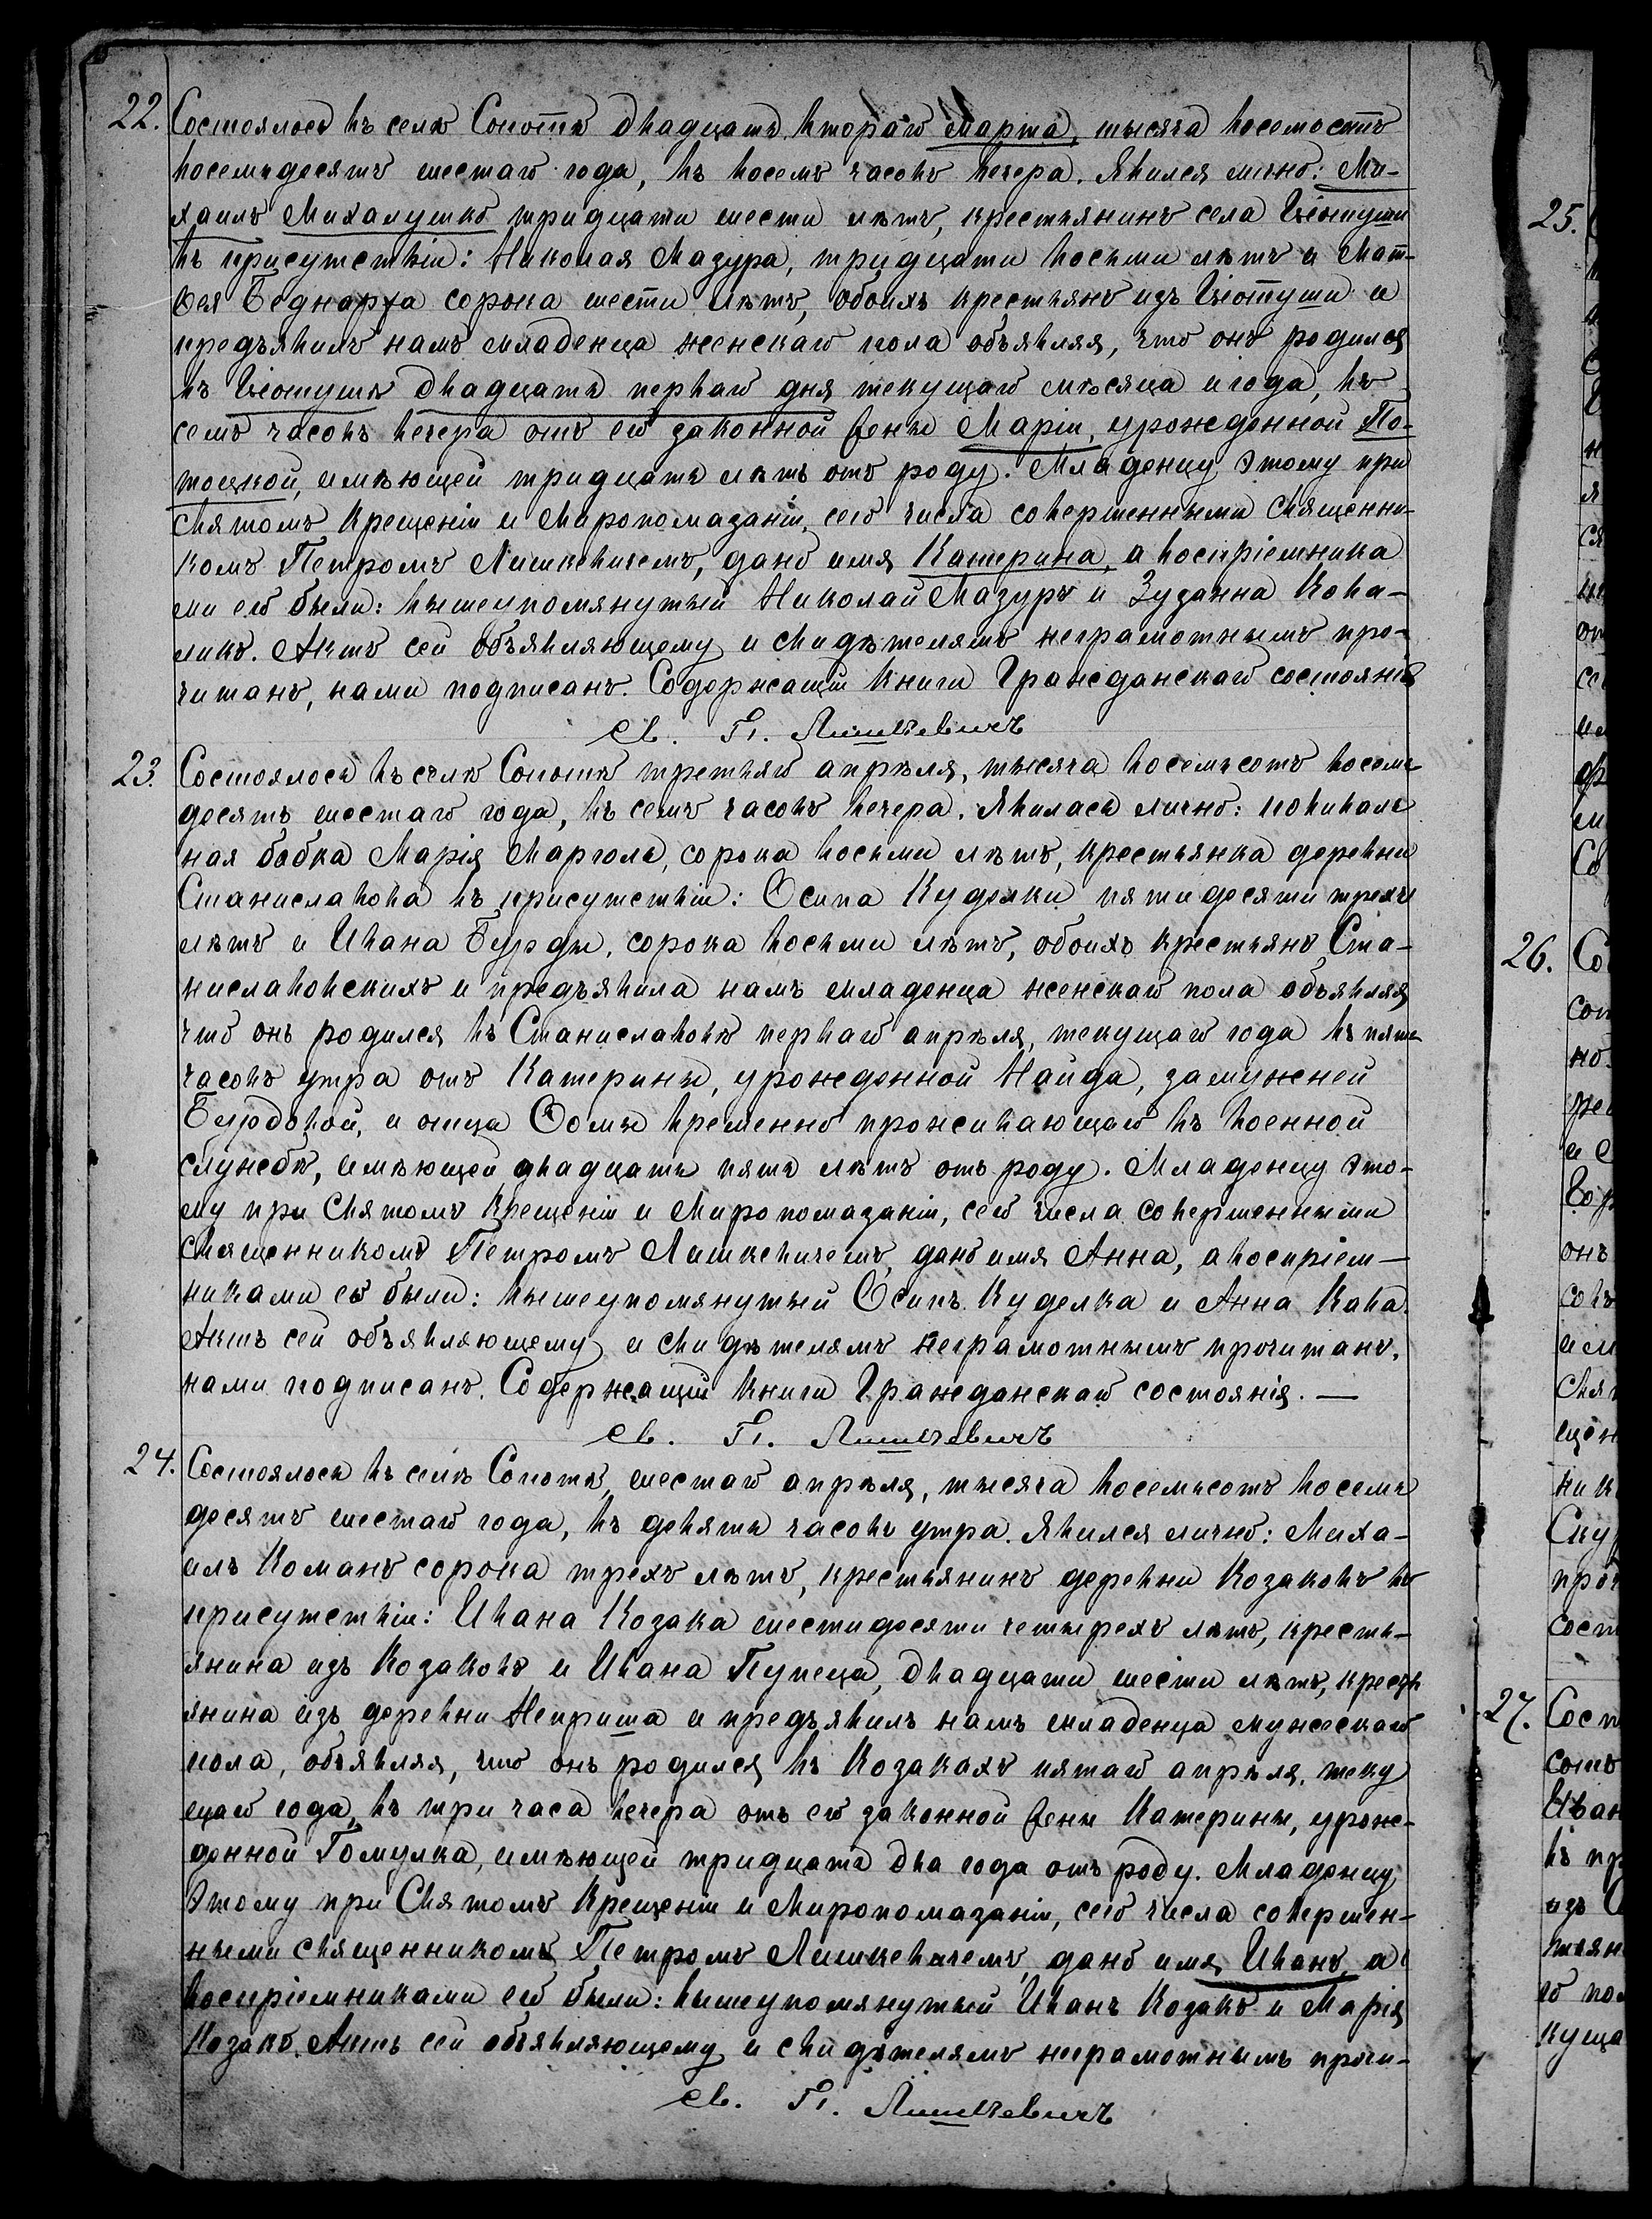 22. Состоялось въ селѣ Сопотѣ двадцать втораго Марта, тысяча восемостъ
восемьдесятъ шестаго года, въ восемъ часовъ вечера. Явился лично: Ми-
хаилъ Михалушко тридцати шести лѣтъ, крестьянинъ села
въ присутствіи: Николая Мазура, тридцати восьми лѣтъ и Мат-
вея Беднаржа сорока шести лѣтъ, обоихъ крестьянъ изъ и
предъявилъ намъ младенца женскаго пола объявляя, что онъ родился
въ двадцать перваго дня текущаго мѣсяца и года, въ
семъ часовъ вечера отъ его законной жены Маріи, урожденной По-
тоцкой, имѣющей тридцать лѣтъ отъ роду. Младенцу этому при
Святомъ Крещеніи и Миропомазаніи, сего числа совершенными Священни-
комъ Петромъ Лишкевичемъ, дано имя Катерина, а воспріемника
ми его были: вышеупомянутый Николай Мазуръ и Зузанна Кова-
ликъ. Актъ сей объявляющему и свидѣтелямъ неграмотнымъ про-
читанъ, нами подписанъ. Содержащій книги Гражданскаго состоянія
Св. П. Лишкевичъ
23. Состоялось въ селѣ Сопотѣ третьяго апрѣля, тысяча восемьсотъ восемь
десятъ шестаго года, въ семъ часовъ вечера. Явилась лично: повиваль
ная бабка Марія Марголь, сорока восьми лѣтъ, крестьянка деревни
Станиславова въ присутствіи: Осипа Куделки пятидесяти трехъ
лѣтъ и Ивана Бурды, сорока восьми лѣтъ, обоихъ крестьянъ Ста-
ниславовскихъ и предъявила намъ младенца женскаго пола объявляя
что онъ родился въ Станиславовѣ перваго апрѣля, текущаго года въ пять
часовъ утра отъ Катерины, урожденной Найда, замужней
Бурдовой, и отца Ѳомы временно проживающаго въ военной
службѣ, имѣющей двадцать пять лѣтъ отъ роду. Младенцу это-
му при Святомъ Крещеніи и Миропомазаніи, сего числа совершенными
Священникомъ Петромъ Лишкевичемъ, дано имя Анна, а воспріем-
никами его были: вышеупомянутый Осипъ Куделка и Анна Кава.
Актъ сей объявляющему и свидѣтелямъ неграмотнымъ прочитанъ,
нами подписанъ. Содержащій книги Гражданскаго состоянія. —
Св. П. Лишкевичъ
24. Состоялось въ селѣ Сопотѣ, шестаго апрѣля, тысяча восемьсотъ восемь
десятъ шестаго года, въ девять часовъ утра. Явился лично: Миха-
илъ Команъ сорока трехъ лѣтъ, крестьянинъ деревни Козаковъ въ
присутствіи: Ивана Козака шестидесяти четырехъ лѣтъ, кресть-
янина изъ Козаковъ и Ивана Пупеца, двадцати шести лѣтъ, кресть
янина изъ деревни Неприша и предъявилъ намъ младенца мужескаго
пола, объявляя, что онъ родился въ Козакахъ пятаго апрѣля, теку
щаго года, въ три часа вечера отъ его законной жены Катерины, урож-
денной Гомулка, имѣющей тридцать два года отъ роду. Младенцу
этому при Святомъ Крещеніи и Миропомазаніи, сего числа совершен-
ными священникомъ Петромъ Лишкевичемъ, дано имя Иванъ, а
воспріемниками его были: вышеупомянутый Иванъ Козакъ и Марія
Козакъ. Актъ сей объявляющему и свидѣтелямъ неграмотнымъ прочи-
Св. П. Лишкевичъ
25.
26.
27.